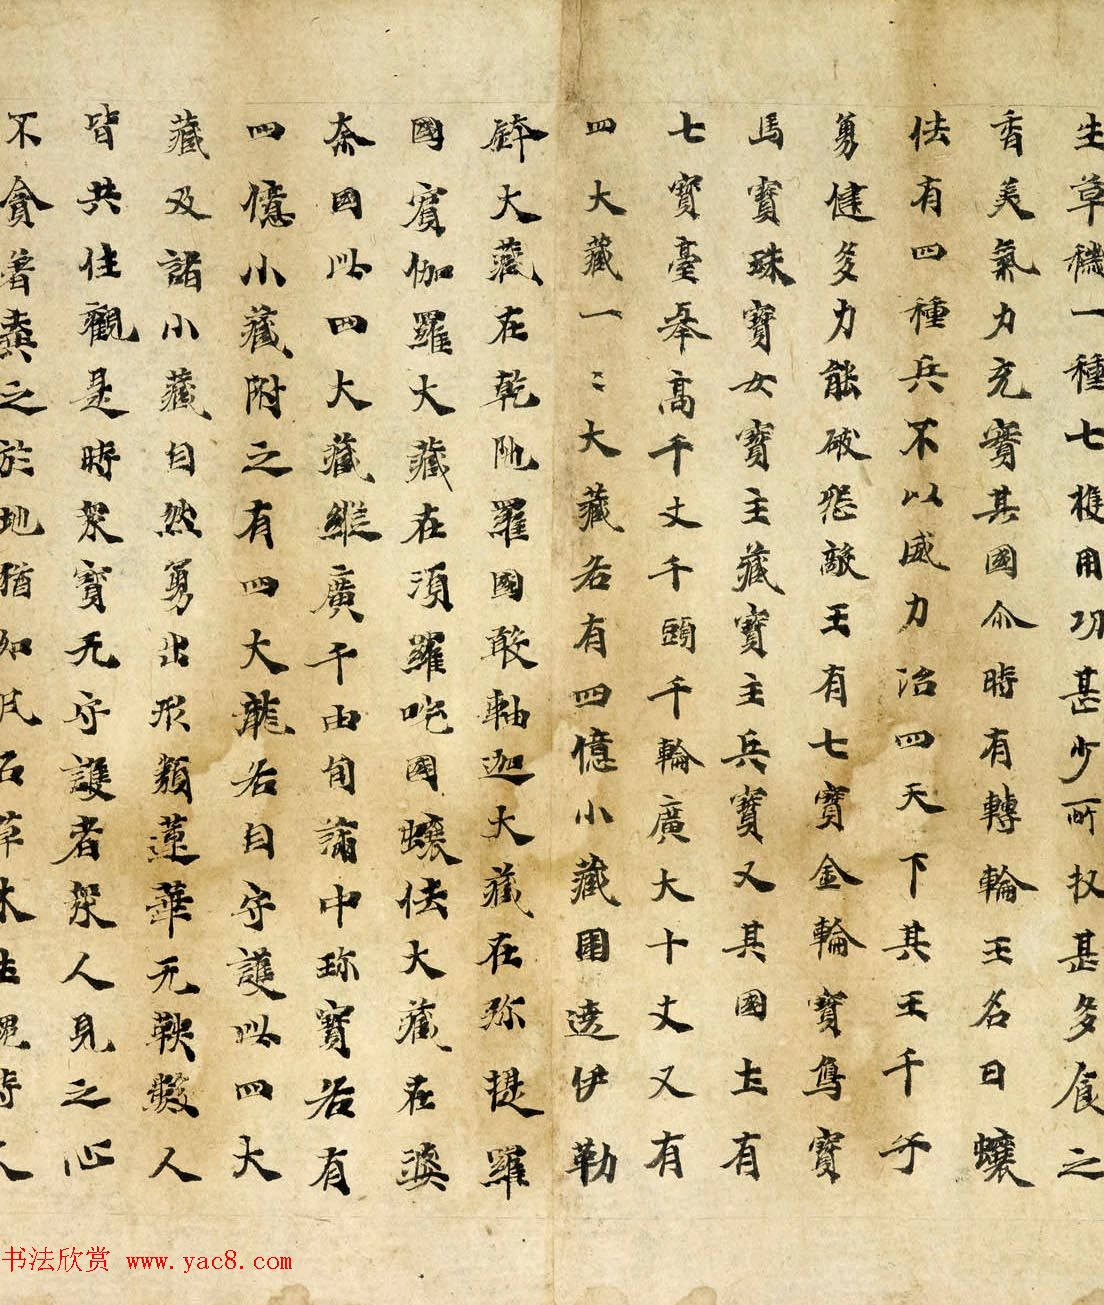 生草穢一種七穫用功甚少所收甚多食之
香美氣力充實其國尒時有轉輪王名曰蠰
佉有四種兵不以威力治四天下其王千子
勇健多力能破怨敵王有七寶金輪寶鳥寶
馬寶珠寶女寶主藏寶主兵寶又其國土有
七寶臺舉高千丈千頭千輪廣大十丈又有
四大藏一〻大藏各有四億小藏圍遶伊勒
鉢大藏在乾陁羅國敢軸迦大藏在弥提羅
國賓伽羅大藏在須羅吒國蠰佉大藏在婆
柰國此四大藏縱廣千由旬滿中珎寶各有
四億小藏附之有四大龍各自守護此四大
藏及諸小藏自然勇出形類蓮華无鞅數人
皆共住觀是時衆寶无守護者衆人見之心
不貪著棄之於地猶如瓦石草木